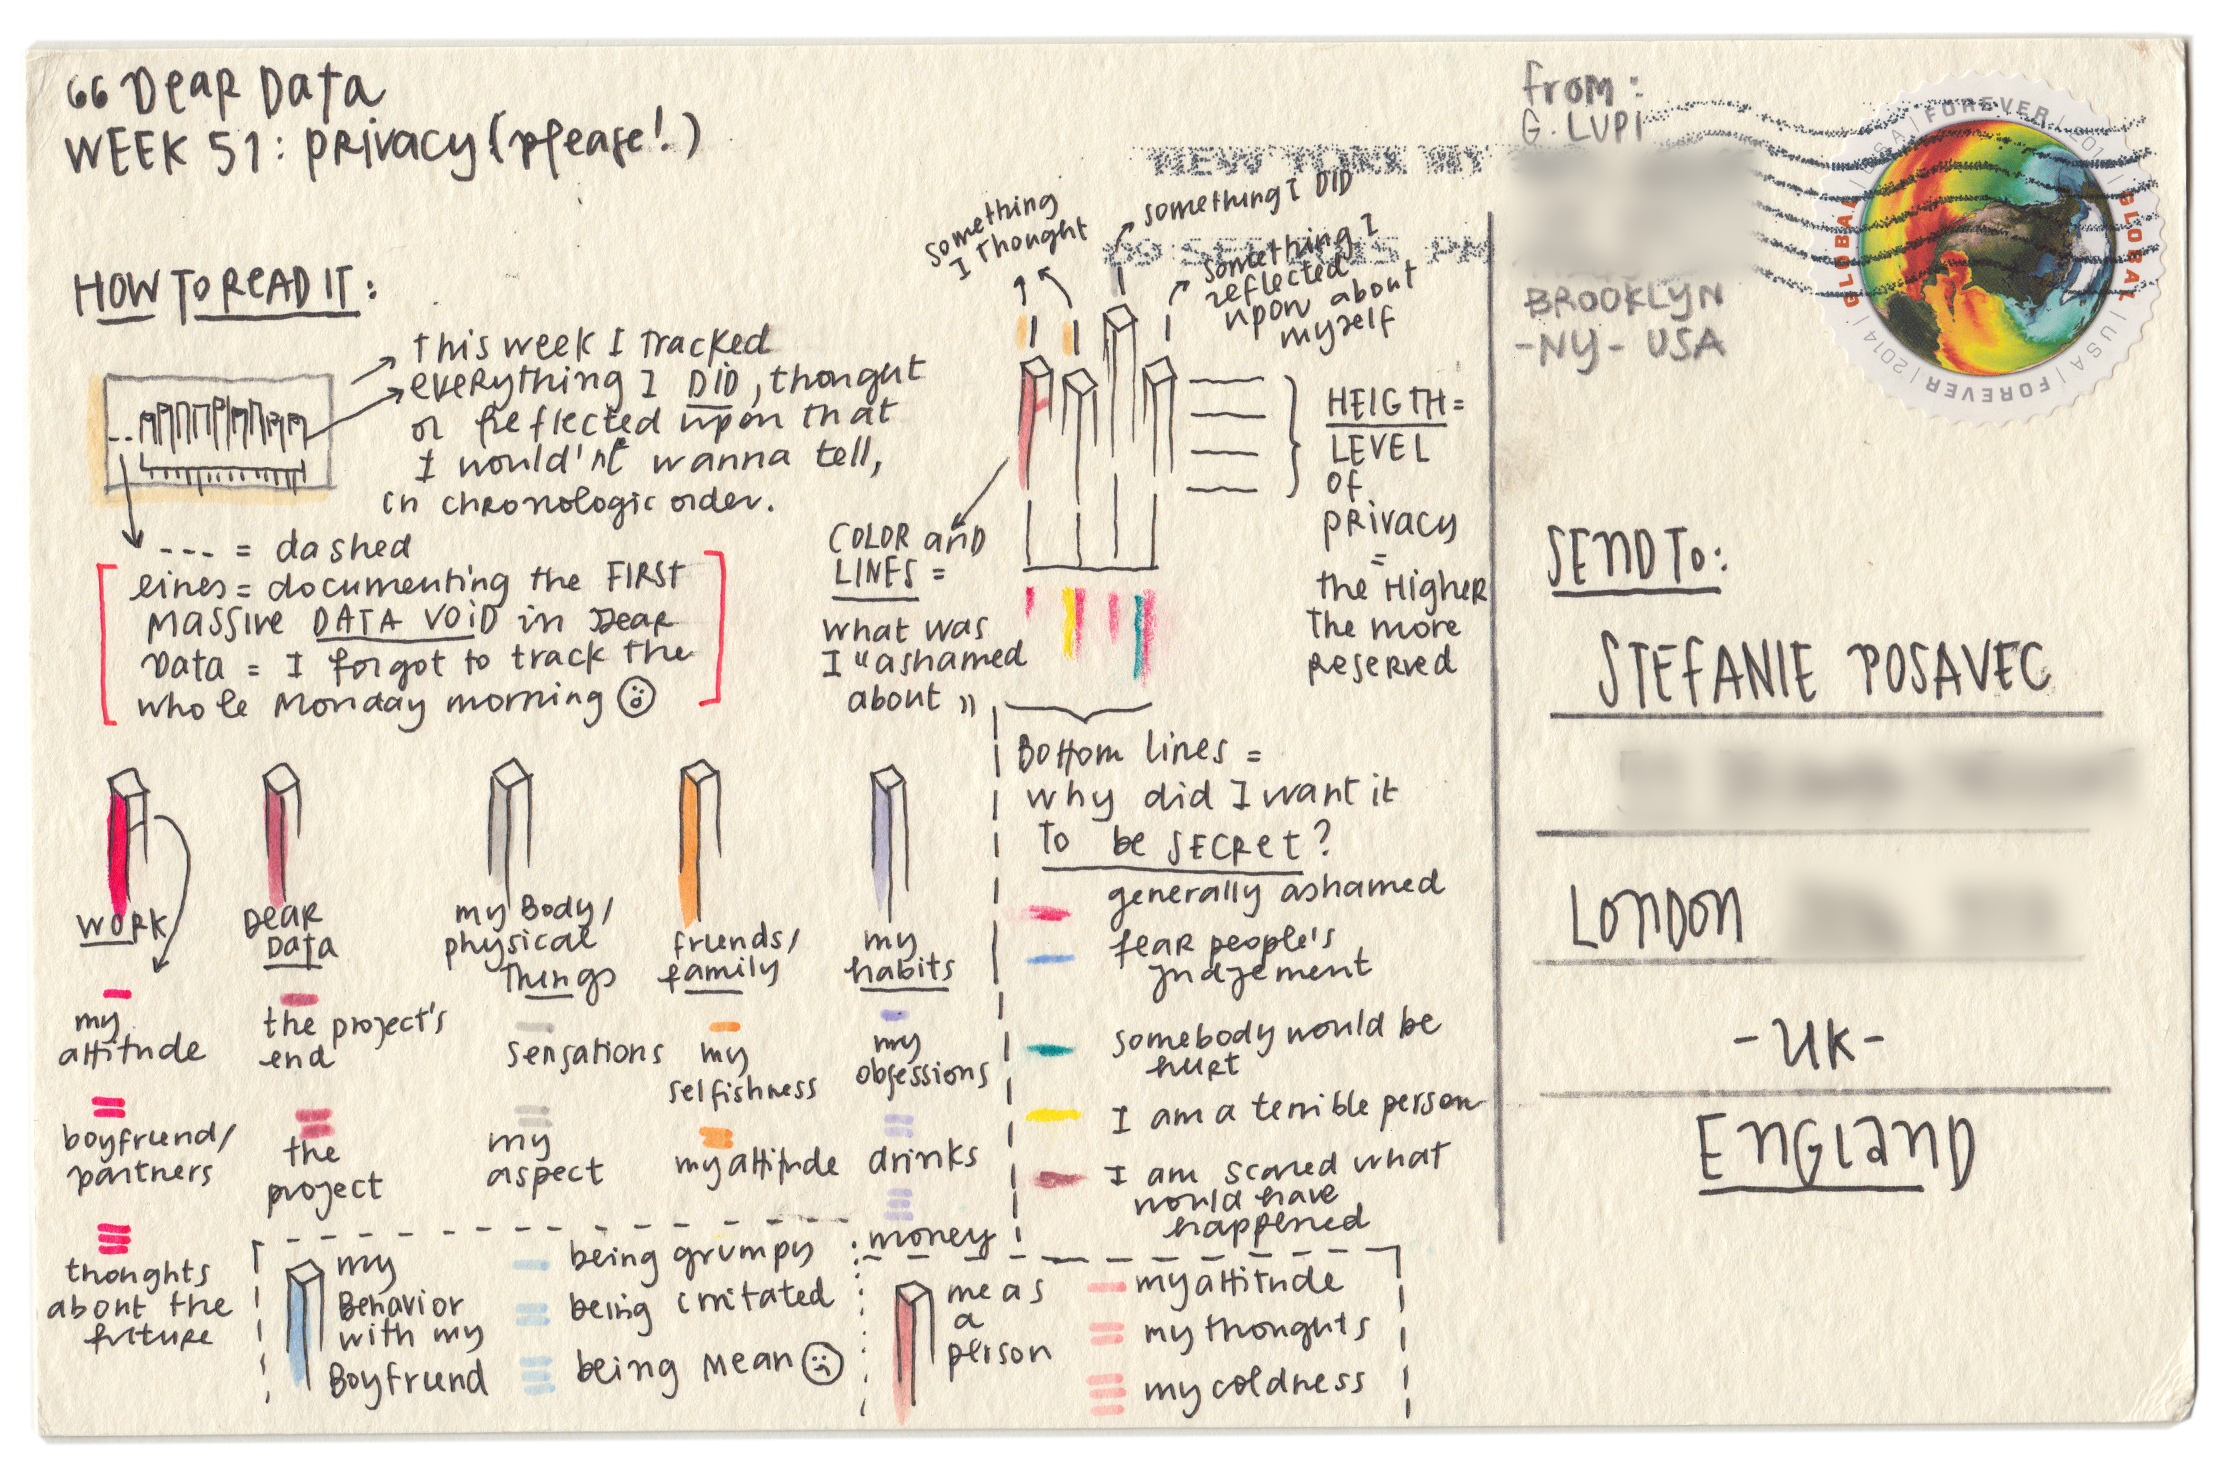 DEAR DATA
WEEK 51: PRIVACY (please!)
HOW TO READ IT:
this week I TRACKED
EVERYTHING I DID, thougut
or REFLECTED upon that
I would'nt wanna tell,
in chronologic order.
--- = dashed
lines = documenting the FIRST
MASSIVE DATA VOID in DEAR
DATA = I forgot to track the
whole Monday morning
something
I thought
something I DID
something I
reflected
upon about
myself
HEIGTH =
LEVEL
OF
PRIVACY
=
the HigHER
The more
RESERVED
COLOR and
LINES =
what was
I "ashamed
about"
Bottom lines =
why did I want it
To be SECRET?
generally ashamed
fear people's
judgement
somebody would be
hurt
I am a terrible person
I am scared what
would have
happened
WORK
my
attitude
boyfriend/
partners
thoughts
about the
future
DEAR
DATA
the project's
end
the
project
my Body/
physical
Things
sensations
my
aspect
friends/
family
my
selfishness
my attitude
my
habits
my
obsessions
drinks
money
my
BEHAVIOR
with my
BoyFriend
being grumpy
being irritated
being MEAN
me as
a
person
my attitude
my thoughts
my coldness
NEW YORK NY
from:
G. LUPI
BROOKLYN
-NY- USA
USA | FOREVER | 2014 | GLOBAL | USA | FOREVER | 2014 | GLOBAL
SEND TO:
STEFANIE POSAVEC
LONDON
-UK-
ENGLAND